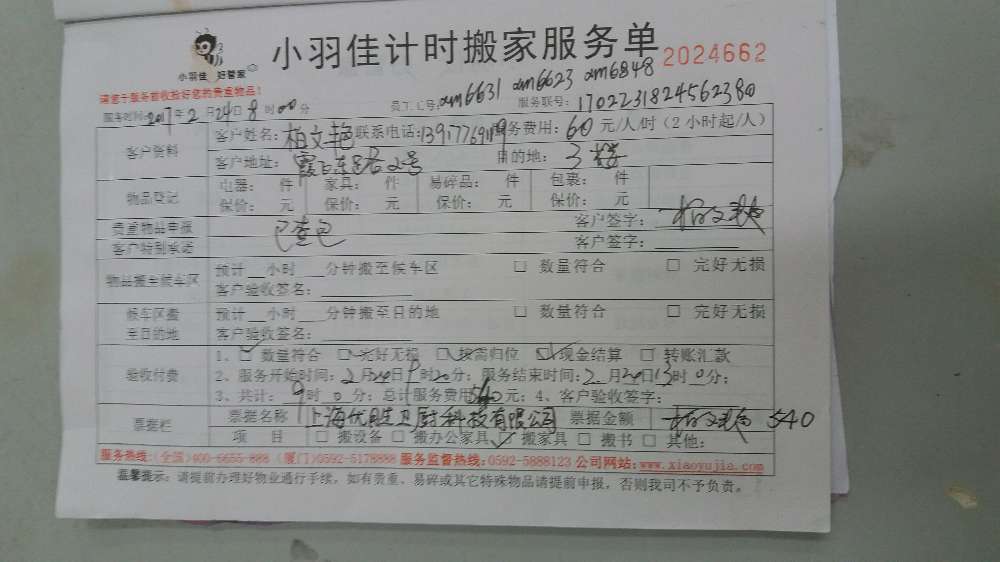 小羽佳 好管家
小羽佳计时搬家服务单 2024662
请您于服务前收验好您的贵重物品!
服务时间:2017年2月24日8时00分 员工工号:xm6631 xm6623 xm6848 服务联号:1702231824562380
客户资料 客户姓名:柏文艳 联系电话: 服务费用:60元/人/时(2小时起/人)
客户地址: 2号 目的地:3楼
物品登记 电器: 件 家具: 件 易碎品: 件 包裹: 件
保价: 元 保价: 元 保价: 元 保价: 元
贵重物品申报 已查包 客户签字:柏文艳
客户特别承诺 客户签字:
物品搬至候车区 预计__小时__分钟搬至候车区 □ 数量符合 □ 完好无损
客户验收签名:
候车区搬至目的地 预计__小时__分钟搬至目的地 □ 数量符合 □ 完好无损
客户验收签名:
验收付费 1、□ 数量符合 □ 完好无损 □ 按需归位 □ 现金结算 □ 转账汇款
2、服务开始时间:2月24日9时20分;服务结束时间:2月24日13时0分;
3、共计:9时0分;总计服务费用540元;4、客户验收签字:
票据栏 票据名称 上海优胜卫厨科技有限公司 票据金额 柏文艳 540
项 目 □ 搬设备 □ 搬办公家具 □ 搬家具 □ 搬书 □ 其他:
服务热线:(全国)400-6655-888 (厦门)0592-5178888 服务监督热线:0592-5888123 公司网站:www.xiaoyujia.com
温馨提示:请提前办理好物业通行手续,如有贵重、易碎或其它特殊物品请提前申报,否则我司不予负责。